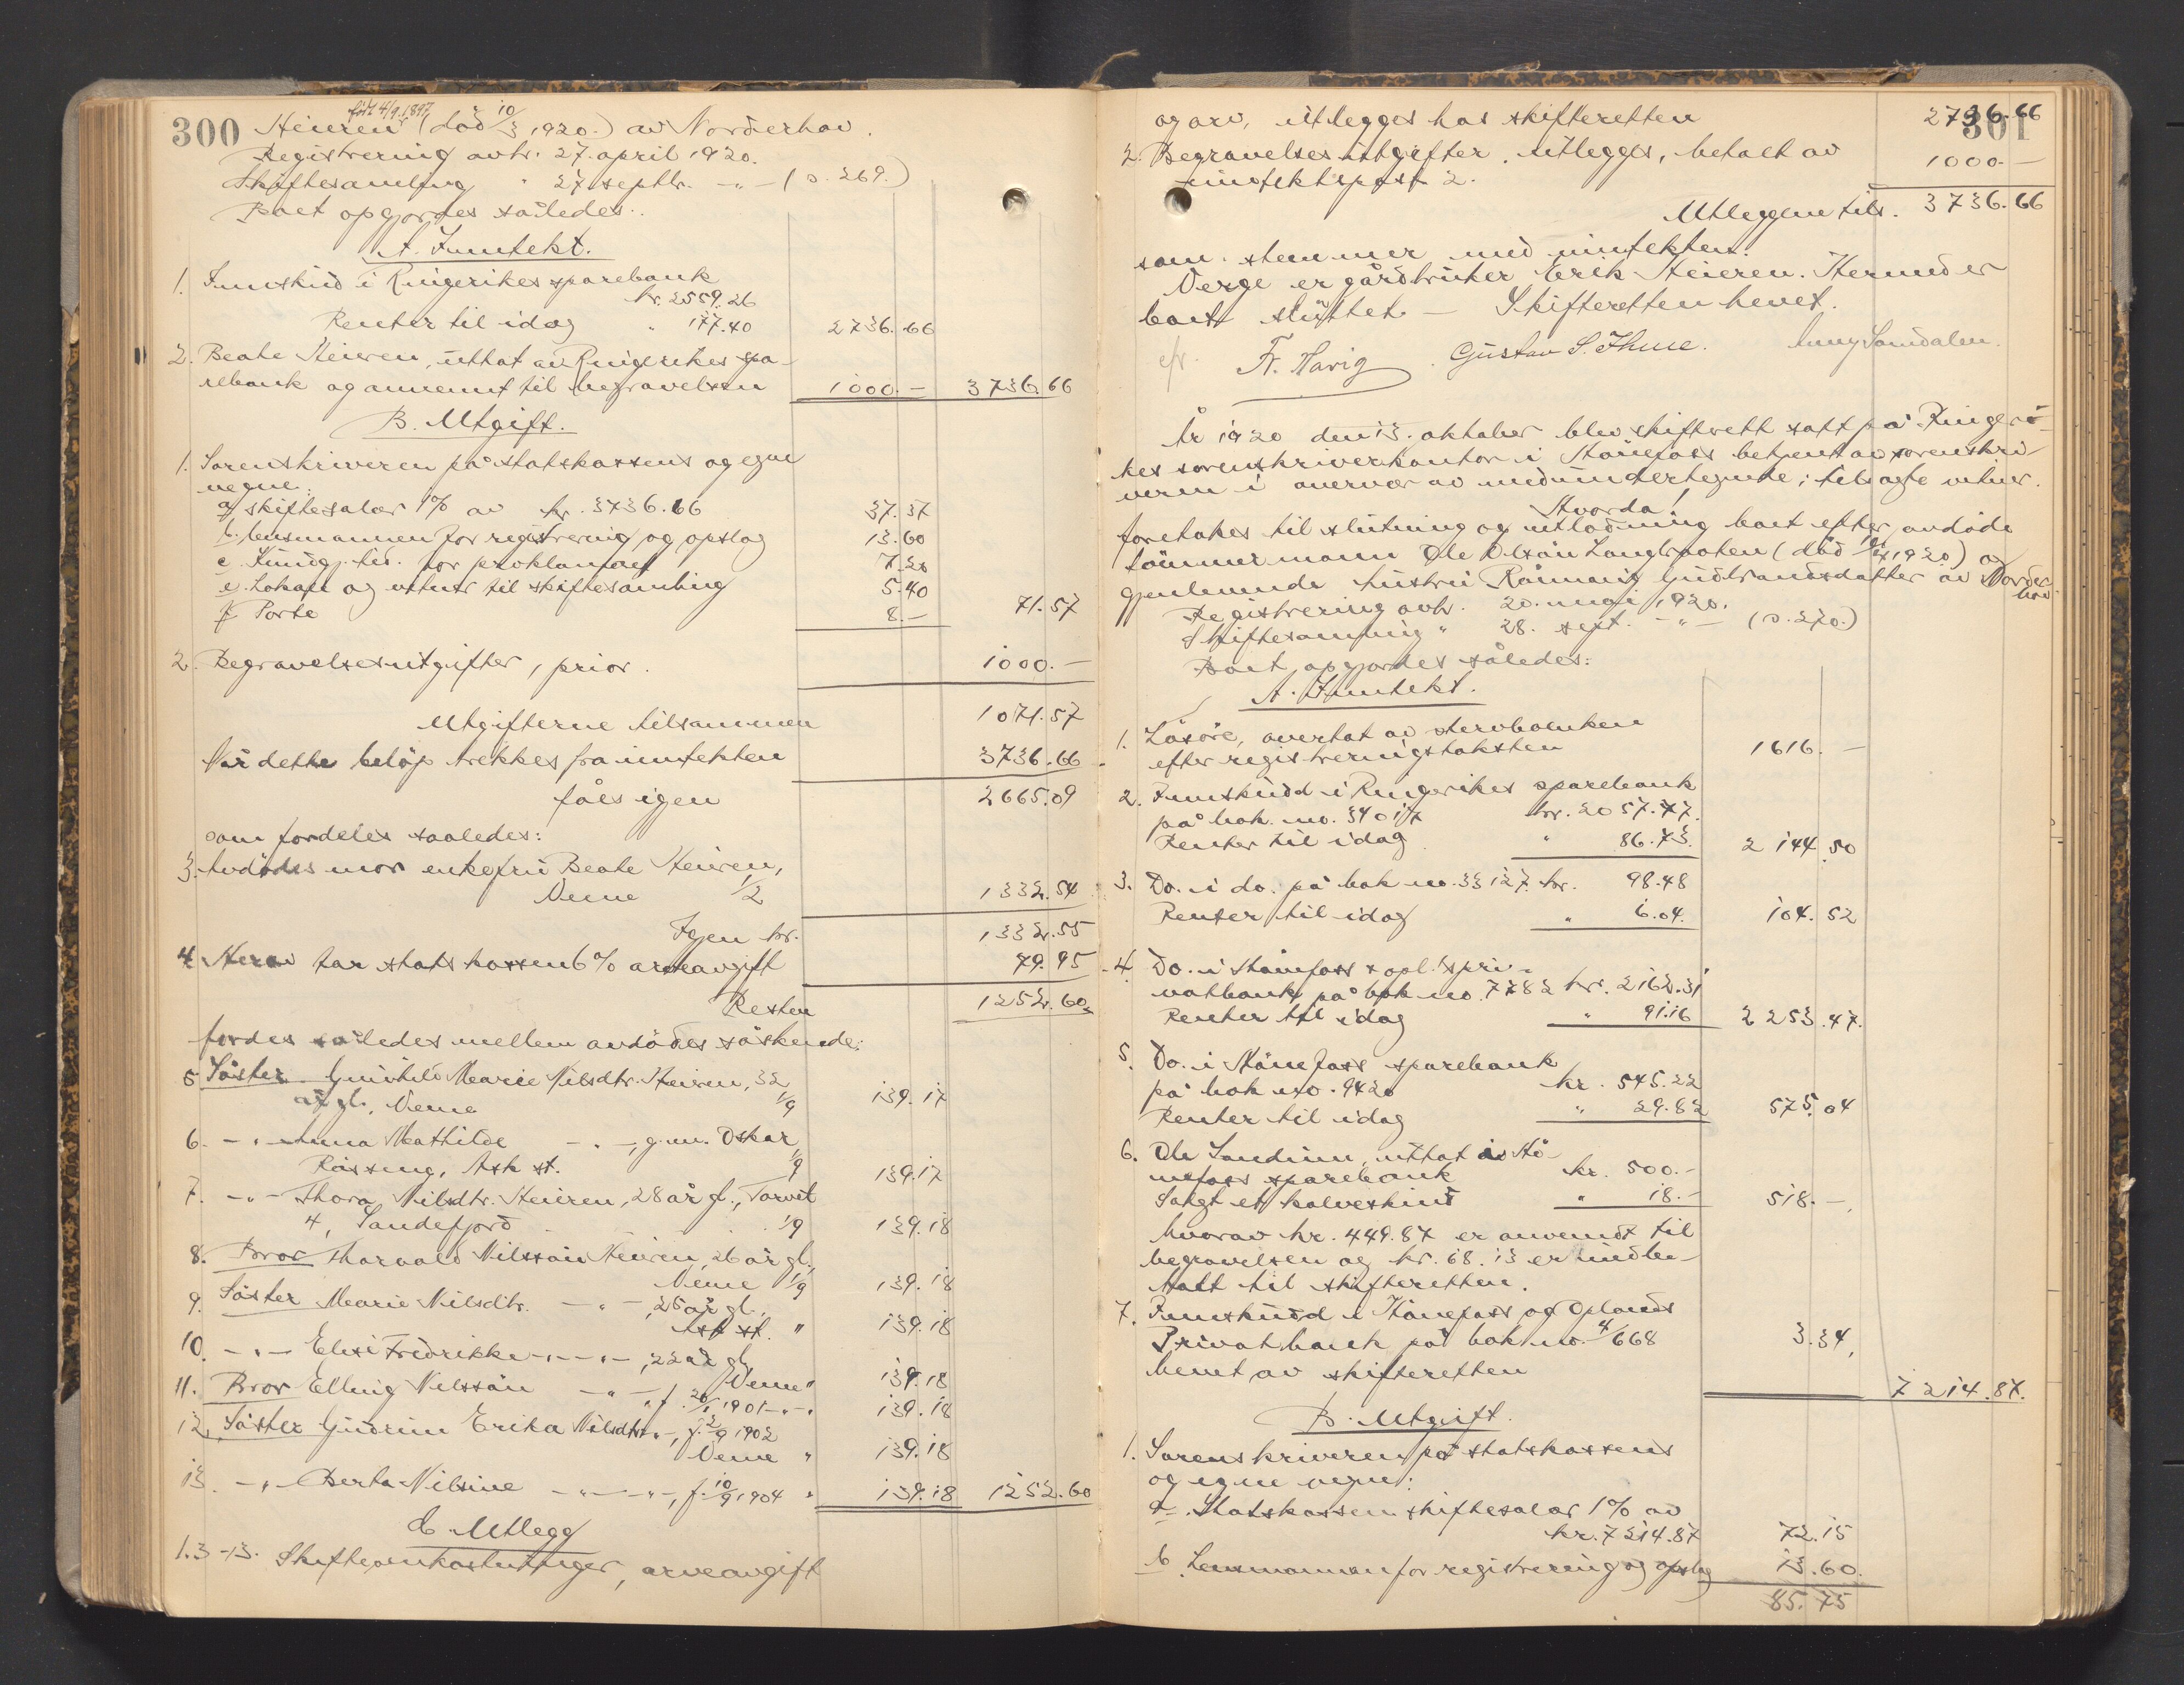 300
født 4/9 1897
Heieren (død 10/3 1920.) av Norderhov.
Registrering avh. 27. april 1920.
Skiftesamling " 27 septbr. - " - (s. 269.)
Boet opgjordes således:
A. Inntekt.
1. Innskud i Ringerikes sparebank
kr. 2559.26
Renter til idag " 177.40 2736.66
2. Beate Heieren, uttat av Ringerikes spa-
rebank og anvendt til begravelsen 1000.- 3736.66
B. Utgift.
1. Sorenskriveren på statskassens og egne
vegne:
a skiftesalær 1% av kr. 3736.66 37.37
b. lensmannen for registrering og opslag 13.60
c. Kundg. tid. for proklamaet 7.20
e. Lokale og vitner til skiftesamling 5.40
f Porto 8.- 71.57
2. Begravelsesutgifter, prior. 1000.-
Utgifterne tilsammen 1071.57
Når dette beløp trekkes fra inntekten 3736.66
fåes igen 2665.09
som fordeles saaledes:
3. Avdødes mor enkefru Beate Heieren,
Veme 1/2 1332.54
Igjen kr. 1332.55
4. Herav tar statskassen 6% arveavgift 79.95
Resten 1252.60
fordeles således mellem avdødes søskende:
5 Søster Gunhild Marie Nilsdtr. Heieren, 32
år gl., Veme 1/9 139.17
6. - " - Anna Mathilde - " -, g.m. Oskar
Røssing, Ask st. 1/9 139.17
7. - " - Thora Nilsdtr. Heieren, 28 år gl., Torvet
4, Sandefjord 1/9 139.18
8. Bror Thorvald Nilssøn Heieren, 26 år gl.,
Veme 1/9 139.18
9. Søster Marie Nilsdtr. - " -, 25 år gl.,
Ask st. " 139.18
10. - " - Elise Fredrikke - " - " -, 22 år gl.
Veme " 139.18
11. Bror Elling Nilssøn - " -, f. 20/1 1901 - " - " 139.18
12. Søster Gudrun Erika Nilsdtr. - " -, f. 12/9 1902
Veme " 139.18
13. - " - Berta Nilsine - " - " -, f. 10/9 1904 " 139.18 1252.60
C. Utlegg
1.3-13. Skifteomkostninger, arveavgift
301
og arv, utlegges hos skifteretten 2736.66
2. Begravelsesutgifter, utlegges, betalt av
inntektspost 2. 1000.-
Utleggene tils. 3736.66
som stemmer med inntekten.
Verge er gårdbruker Erik Heieren. Hermed er
boet sluttet - Skifteretten hevet.
Fr. Havig Gustav S. Thue.
År 1920 den 13. oktober blev skifterett satt på Ringeri-
kes sorenskriverkontor i Hønefoss betjent av sorenskri-
veren i overvær av medundertegnede, tilsagte vitner.
Hvorda!
foretakes til slutning og utlodning boet efter avdøde
tømmermann Ole Olsøn Langbraaten (død 1920) og
gjenlevende hustru Rønnaug Gudbrandsdatter av Norder-
hov
Registrering avh. 20. mai 1920.
Skiftesamling " 28. sept. - " - (s. 270.)
Boet opgjordes således:
A. Inntekt.
1. Løsøre, overtat av stervboenken
efter registreringstaksten 1616.-
2. Innskudd i Ringerikes sparebank
på bok no. 34017 kr. 2057.77.
Renter til idag " 86.73. 2144.50
3. Do. i do. på bok no. 33127. kr. 98.48
Renter til idag " 6.04. 104.52
4. Do. i Hønefoss & opl.s pri-
vatbank på bok no. 7782 kr. 2162.31
Renter til idag " 91.16 2253.47.
5. Do. i Hønefoss sparebank
på bok no. 9420 kr. 545.22
Renter til idag " 29.82 575.04
6. Ole Sandum, uttat av Hø-
nefoss sparebank kr. 500.-
Solgt et kalveskind " 18.- 518.-
hvorav kr. 449.87 er anvendt til
begravelsen og kr. 68.13 er indbe-
talt til skifteretten.
7. Innskudd i Hønefoss og Oplands
Privatbank på bok no. 4/668 3.34,
hevet av skifteretten
7214.87.
B. Utgift.
1. Sorenskriveren på statskassens
og egne vegne:
a. Statskassen skiftesalær 1% av
kr. 7214.87 72.15
b. Lensmannen for registrering og opslag 13.60.
85.75